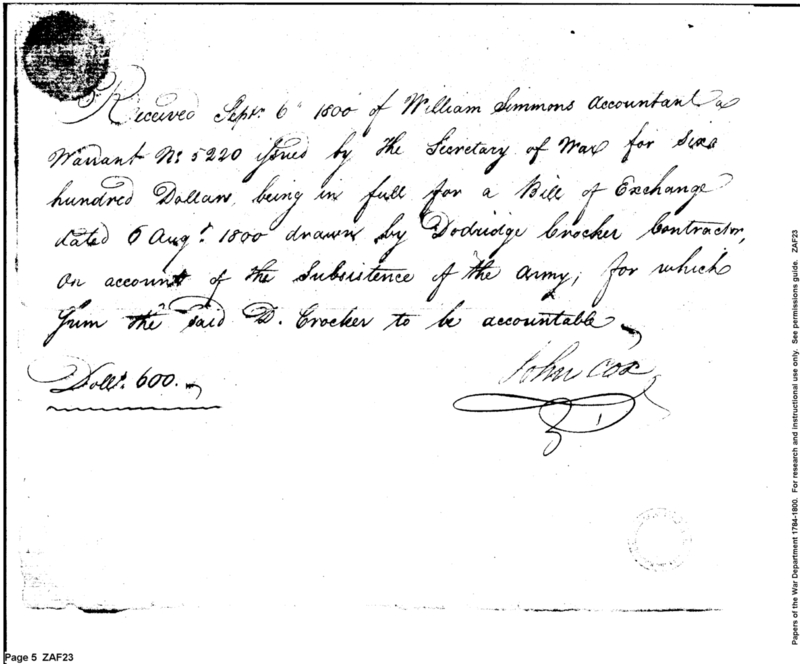 Received Septr. 6th 1800 of William Simmons Accountant a
Warrant No. 5220 issued by the Secretary of War for Six
hundred Dollars, being in full for a Bill of Exchange
dated 6 Augt. 1800 drawn by Dodridge Crocker Contractor,
on account of the Subsistence of the Army; for which
Sum the said D. Crocker to be accountable
Dolls. 600.
John Cox
Page 5 ZAF23
Papers of the War Department 1784-1800. For research and instructional use only. See permissions guide. ZAF23